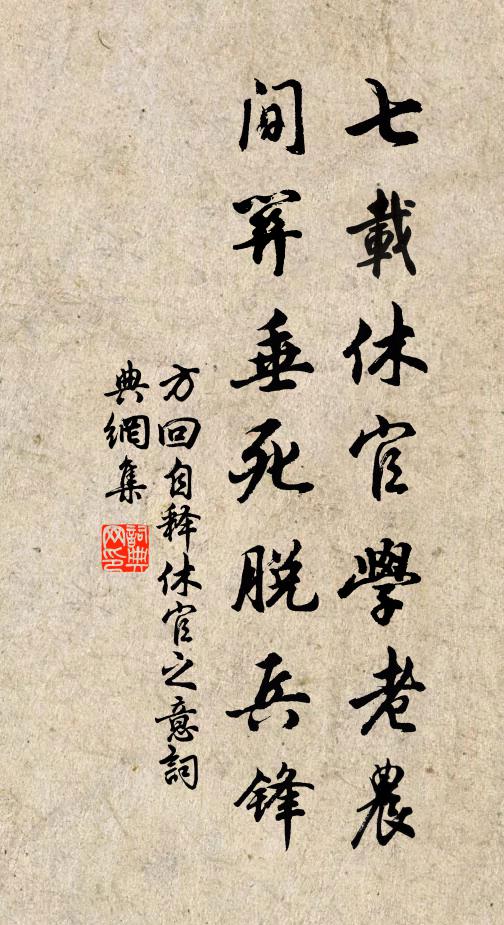 七載休官學老農
間關垂死脫兵鋒
方回自释休官之意詞
典網集
詞典
网印